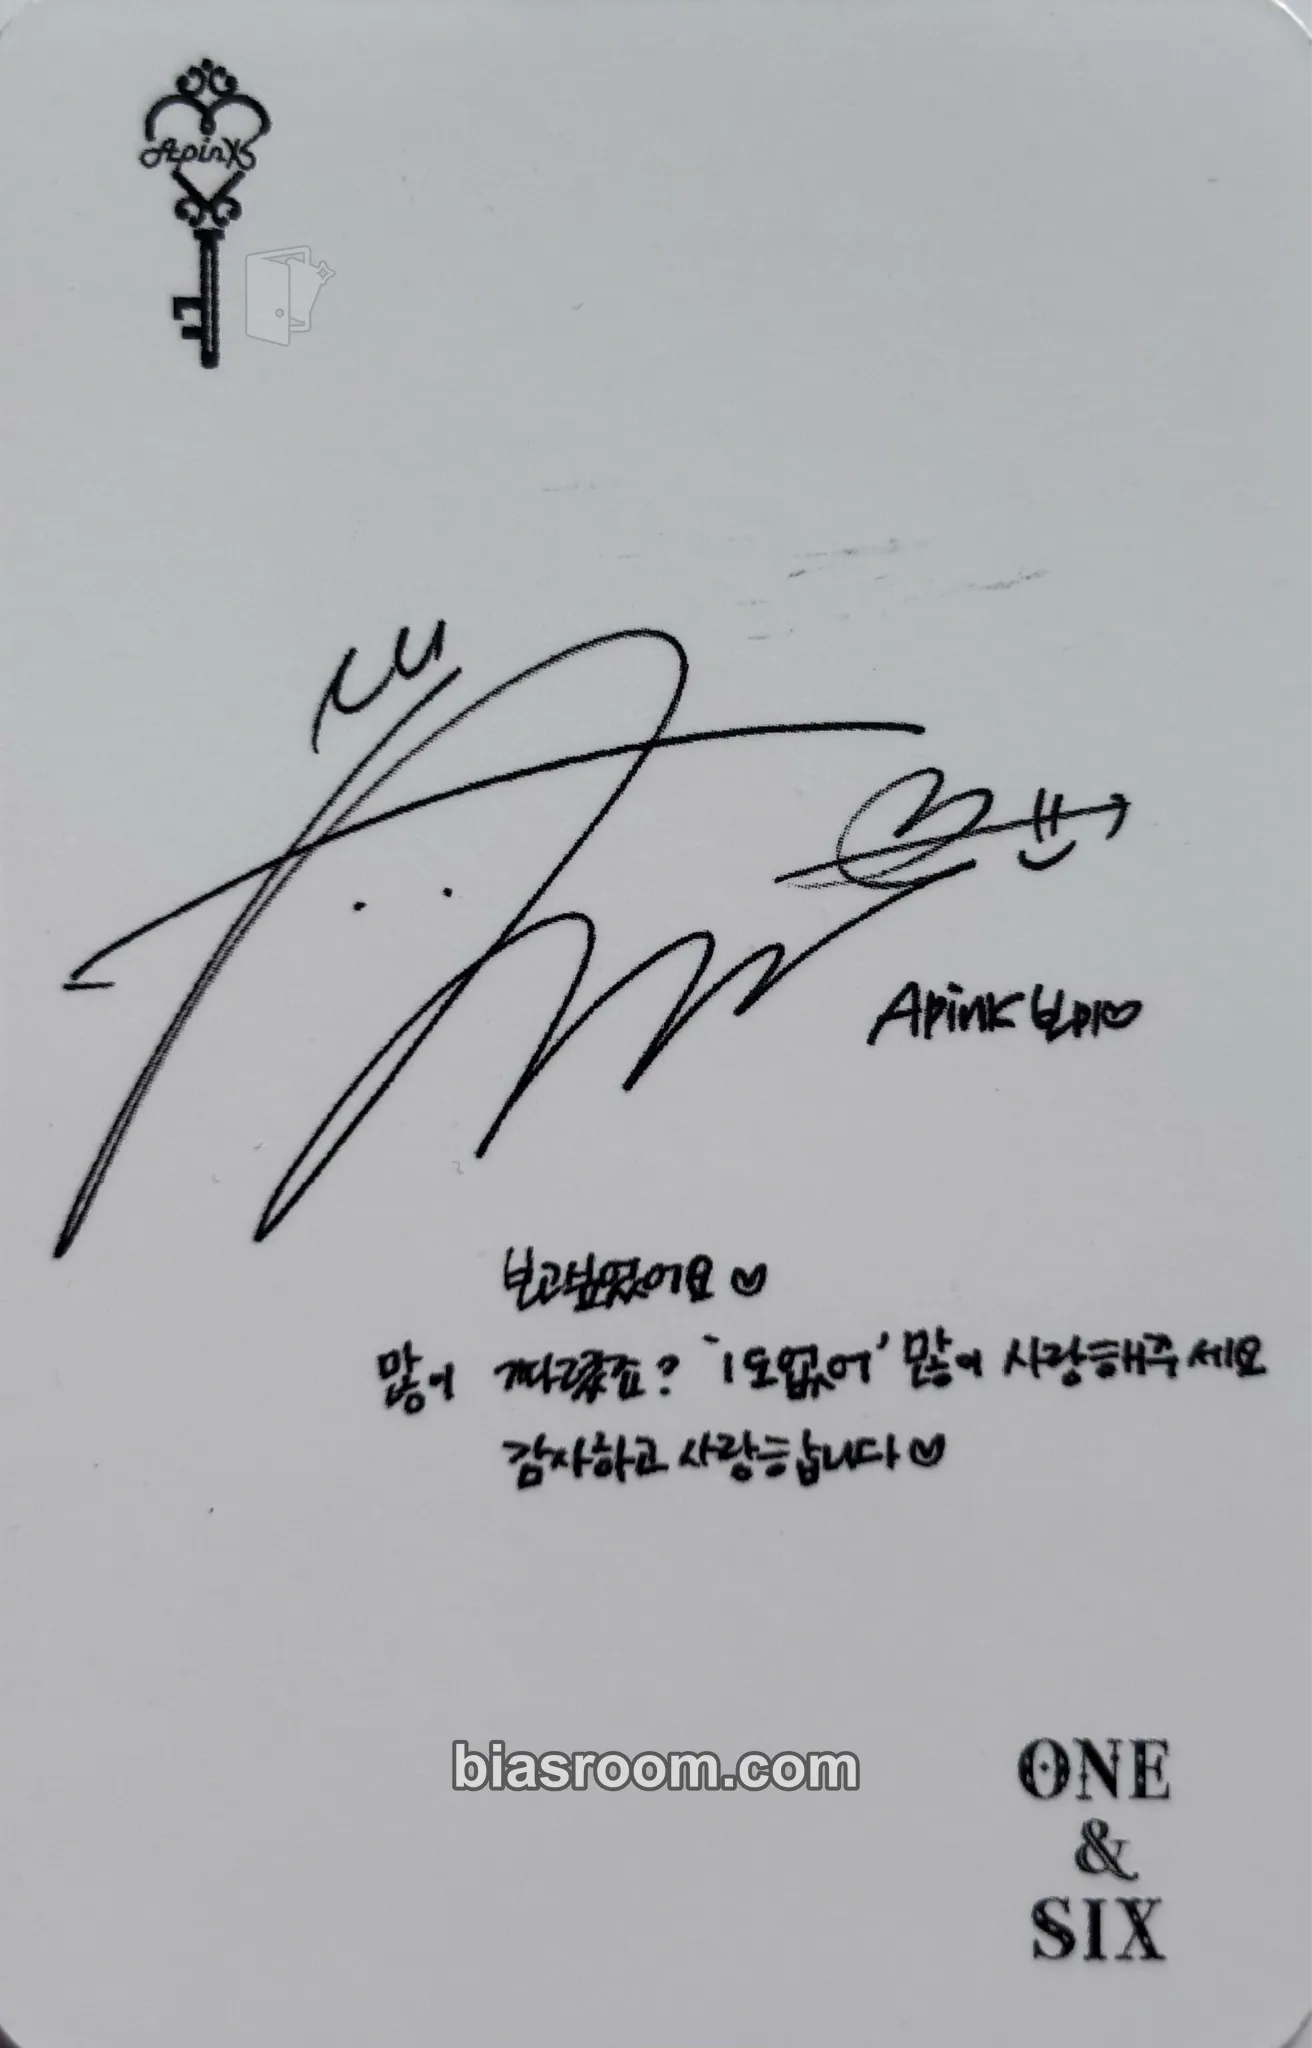 Apink
Apink 보미♡
보고싶었어요♡
많이 기다렸죠? '1도없어' 많이 사랑해주세요
감사하고 사랑합니다♡
biasroom.com
ONE
&
SIX